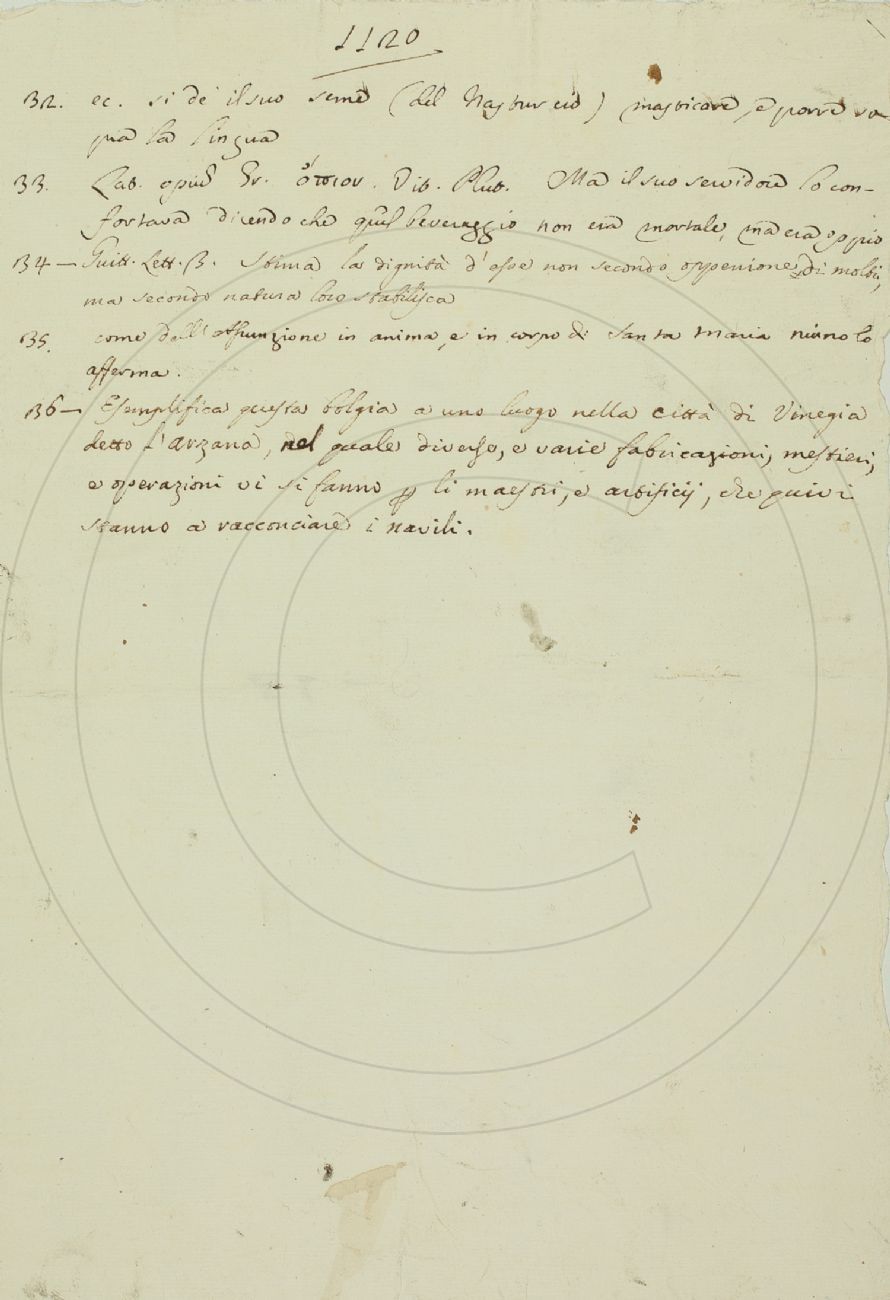 1120
32. ec. si de' il suo seme (del Nasturcio) masticare, e porre so-
pra la lingua
33. Lat. opium Gr. ὄπιον. Vit. Plut. Ma il suo servidore lo con-
fortava dicendo che quel beveraggio non era mortale, ma era oppio
134 — Guitt. Lett. B. Stima la dignità d'esse non secondo oppenione di molti,
ma secondo natura loro stabilisca
135. come dell'assunzione in anima, e in corpo di Santa Maria niuno lo
afferma.
136 — Esemplifica questa bolgia a uno luogo nella città di Vinegia
detto l'arzana, nel quale diverse, e varie fabricazioni, mestieri,
e operazioni vi si fanno ꝑ li maestri, e artificij, che quivi
stanno a racconciare i navili.